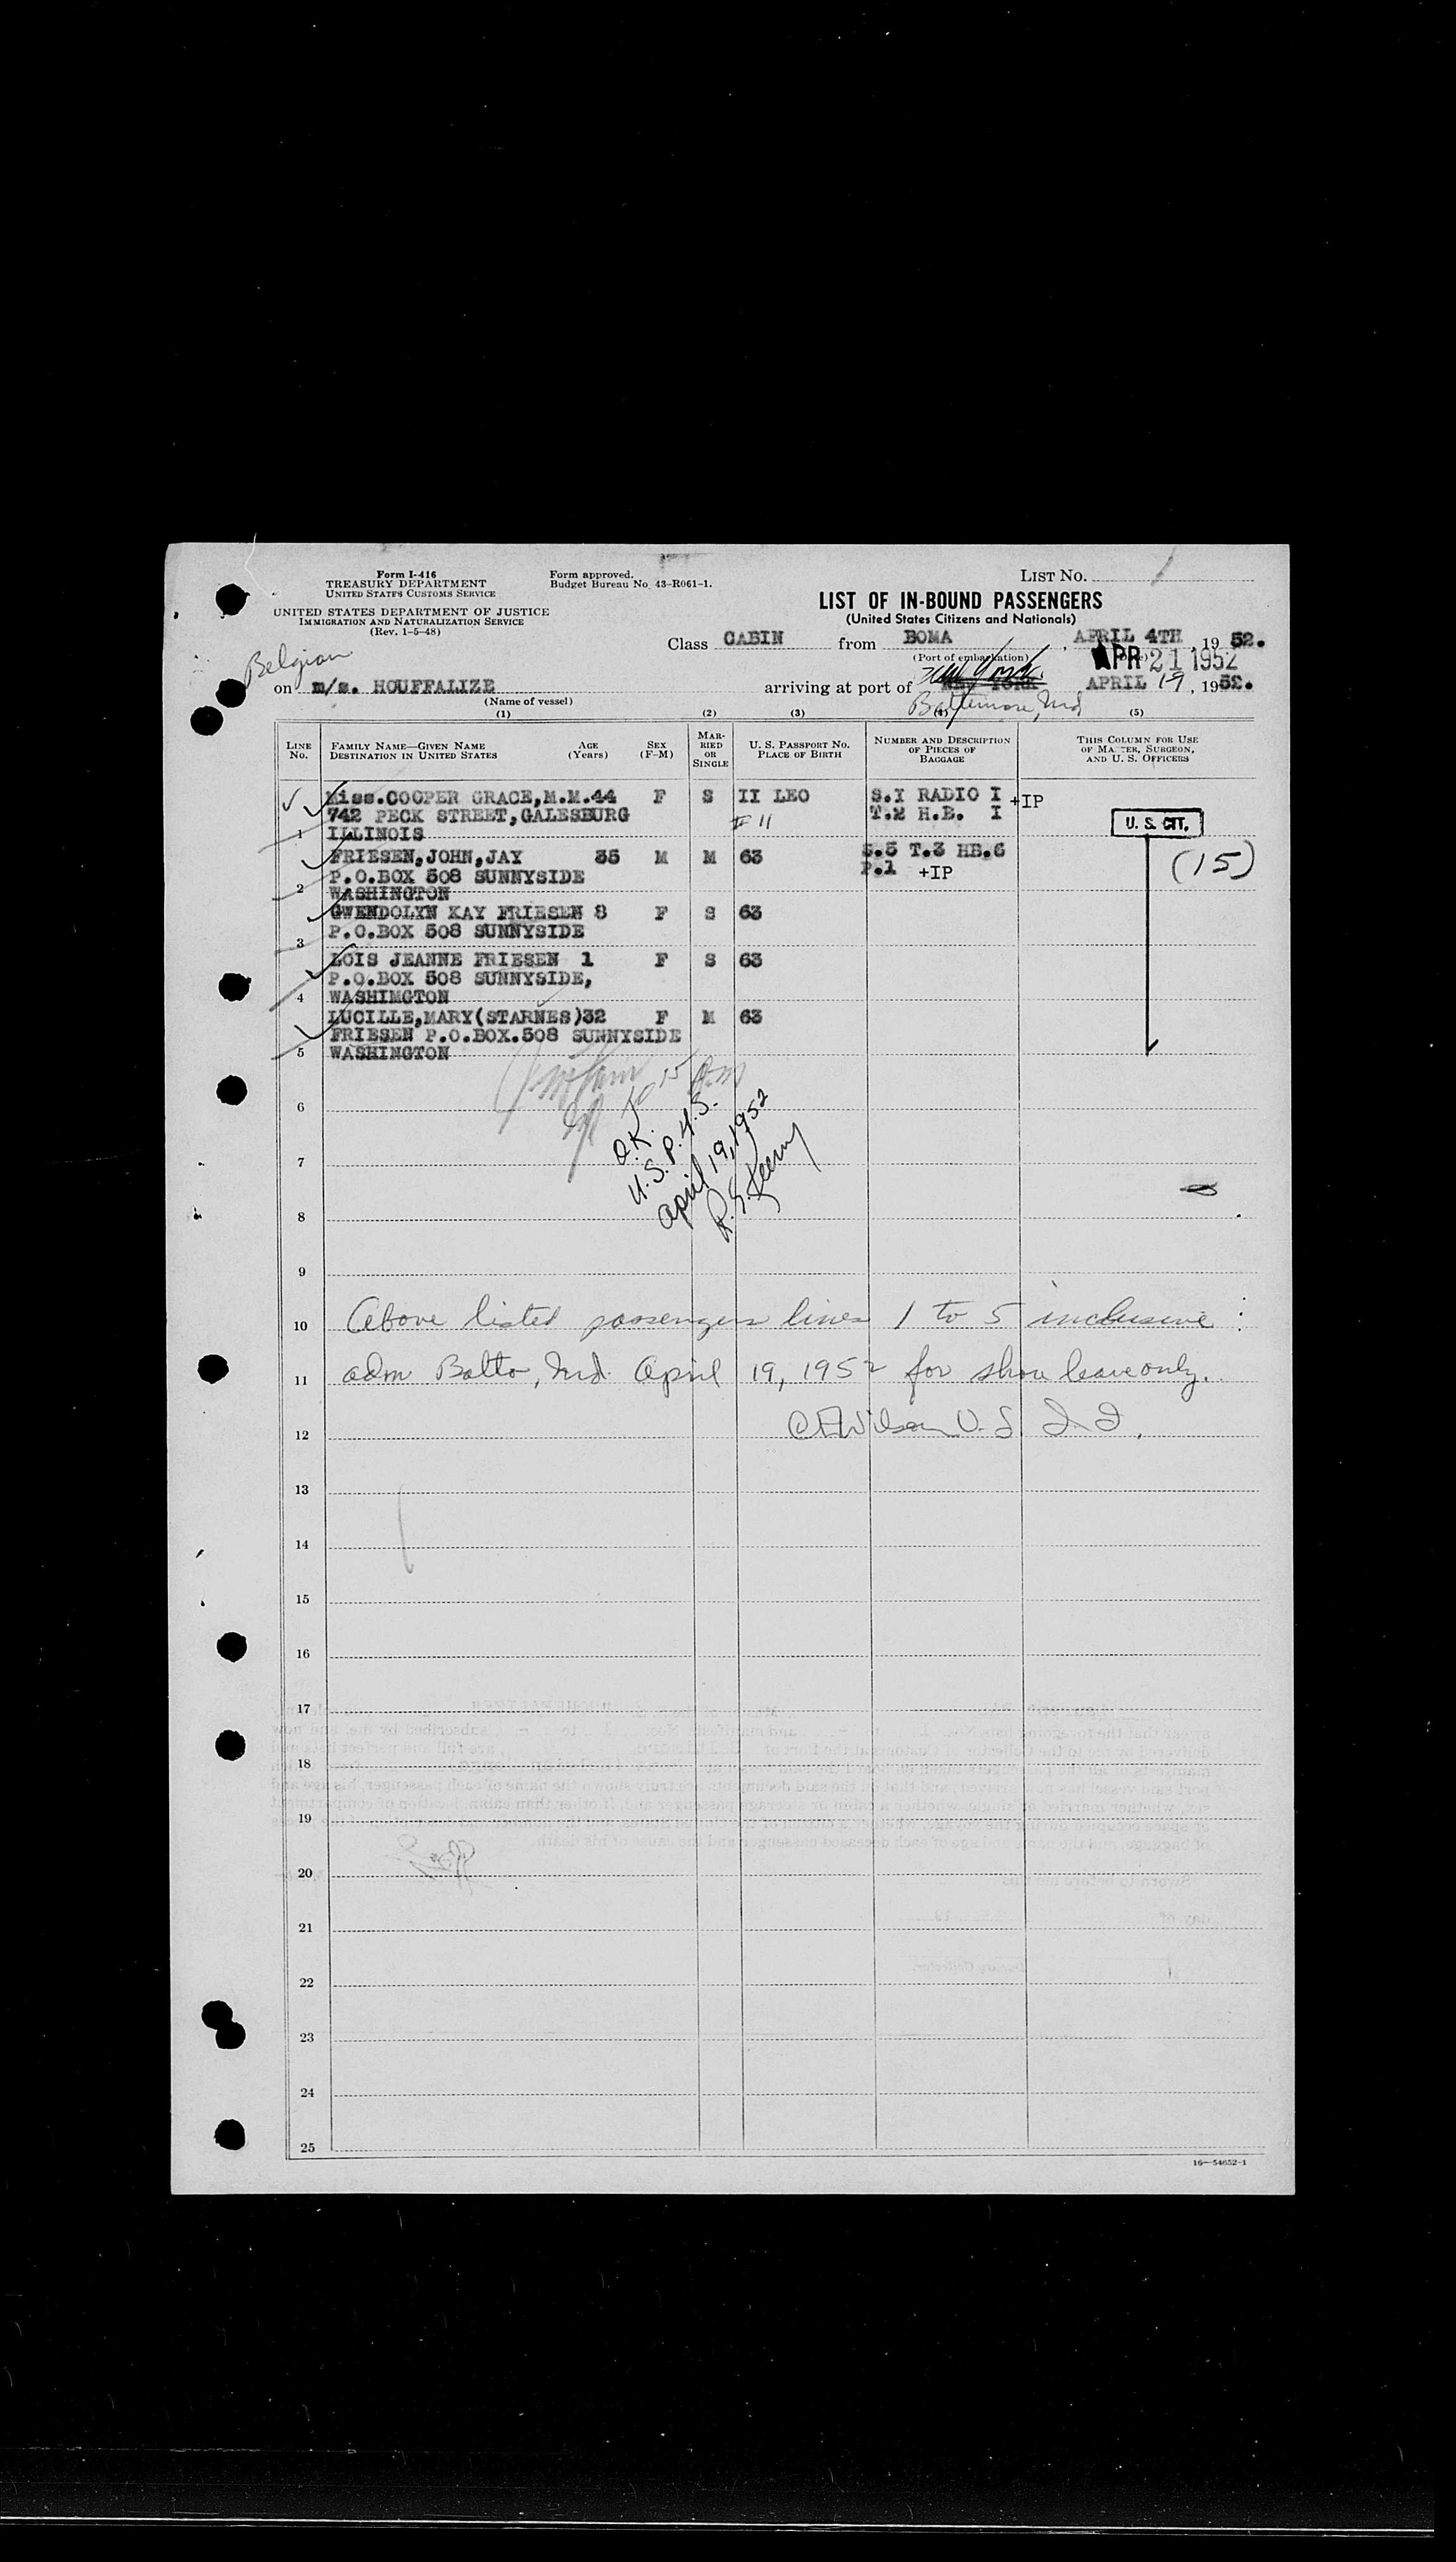 Form I-416
TREASURY DEPARTMENT
UNITED STATES CUSTOMS SERVICE
UNITED STATES DEPARTMENT OF JUSTICE
IMMIGRATION AND NATURALIZATION SERVICE
(Rev. 1-5-48)
Form approved.
Budget Bureau No. 43-R061-1.
LIST NO.
LIST OF IN-BOUND PASSENGERS
(United States Citizens and Nationals)
Class CABIN from BOMA , APRIL 4TH , 19 52.
(Port of embarkation)
APR 21 1952
Belgian
on m/s. HOUFFALIZE arriving at port of New York NEW YORK APRIL 19, 1952.
(Name of vessel)
Baltimore, Md
(1) (2) (3) (4) (5)
LINE No. FAMILY NAME—GIVEN NAME DESTINATION IN UNITED STATES AGE (Years) SEX (F-M) MARRIED OR SINGLE U. S. PASSPORT NO. PLACE OF BIRTH NUMBER AND DESCRIPTION OF PIECES OF BAGGAGE THIS COLUMN FOR USE OF MASTER, SURGEON, AND U. S. OFFICERS
Miss.COOPER GRACE,M.M.44 F S II LEO S.I RADIO I +IP
742 PECK STREET,GALESBURG # 11 T.2 H.B. I
1 ILLINOIS
U. S. CIT.
FRIESEN,JOHN,JAY 35 M M 63 S.5 T.3 HB.6
P.O.BOX 508 SUNNYSIDE P.1 +IP
(15)
2 WASHINGTON
GWENDOLYN KAY FRIESEN 8 F S 63
3 P.O.BOX 508 SUNNYSIDE
LOIS JEANNE FRIESEN 1 F S 63
P.O.BOX 508 SUNNYSIDE,
4 WASHINGTON
LUCILLE,MARY(STARNES)32 F M 63
FRIESEN P.O.BOX.508 SUNNYSIDE
5 WASHINGTON
O.K.
U.S.P.H.S.
April 19, 1952
6
7
8
9
10 Above listed passengers lines 1 to 5 inclusive
11 adm Balto, Md. April 19, 1952 for shore leave only.
12 Wilson U.S. I. I.
13
14
15
16
17
18
19
20
21
22
23
24
25
16—54652-1